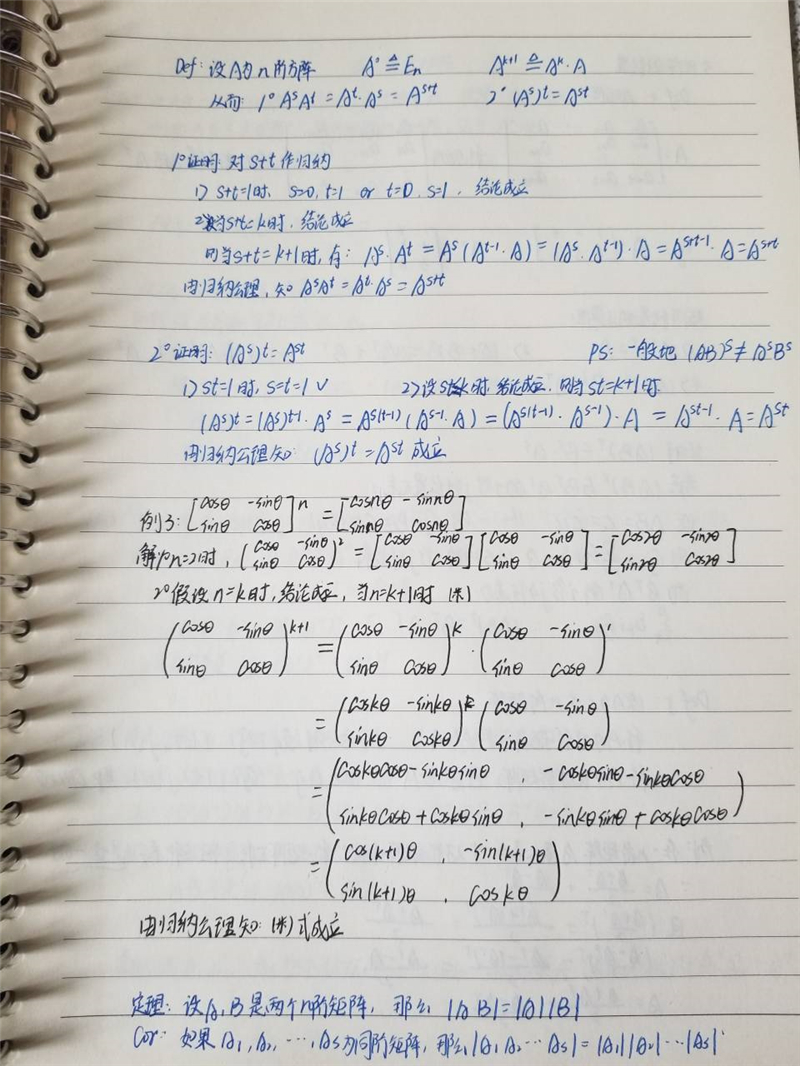 Def: 设A为n阶方阵 A⁰ ≜ Eₙ Aᵏ⁺¹ ≜ Aᵏ·A
从而: 1° AˢAᵗ = Aᵗ·Aˢ = Aˢ⁺ᵗ 2° (Aˢ)ᵗ = Aˢᵗ
1°证明: 对s+t作归纳
1) s+t=1时, s=0, t=1 or t=0, s=1, 结论成立
2) 当s+t=k时, 结论成立
则当s+t=k+1时, 有: Aˢ·Aᵗ = Aˢ(Aᵗ⁻¹·A) = (Aˢ·Aᵗ⁻¹)·A = Aˢ⁺ᵗ⁻¹·A = Aˢ⁺ᵗ
由归纳公理, 知 AˢAᵗ = Aᵗ·Aˢ = Aˢ⁺ᵗ
2°证明: (Aˢ)ᵗ = Aˢᵗ PS: 一般地 (AB)ˢ ≠ AˢBˢ
1) st=1时, s=t=1 √ 2) 设st≤k时 结论成立, 则当st=k+1时
(Aˢ)ᵗ = (Aˢ)ᵗ⁻¹·Aˢ = Aˢ⁽ᵗ⁻¹⁾(Aˢ⁻¹·A) = (Aˢ⁽ᵗ⁻¹⁾·Aˢ⁻¹)·A = Aˢᵗ⁻¹·A = Aˢᵗ
由归纳公理知: (Aˢ)ᵗ = Aˢᵗ 成立
例3: [cosθ -sinθ; sinθ cosθ]ⁿ = [cosnθ -sinnθ; sinnθ cosnθ]
解1° n=2时, (cosθ -sinθ; sinθ cosθ)² = [cosθ -sinθ; sinθ cosθ][cosθ -sinθ; sinθ cosθ] = [cos2θ -sin2θ; sin2θ cos2θ]
2° 假设n=k时, 结论成立, 当n=k+1时 (*)
(cosθ -sinθ; sinθ cosθ)ᵏ⁺¹ = (cosθ -sinθ; sinθ cosθ)ᵏ·(cosθ -sinθ; sinθ cosθ)¹
= (coskθ -sinkθ; sinkθ coskθ)(cosθ -sinθ; sinθ cosθ)
= (coskθcosθ-sinkθsinθ , -coskθsinθ-sinkθcosθ; sinkθcosθ+coskθsinθ , -sinkθsinθ+coskθcosθ)
= (cos(k+1)θ , -sin(k+1)θ; sin(k+1)θ , coskθ)
由归纳公理知: (*)式成立
定理: 设A, B是两个n阶矩阵, 那么 |AB|=|A||B|
Cor: 如果A₁, A₂, ⋯, Aₛ为同阶矩阵, 那么|A₁A₂⋯Aₛ| = |A₁||A₂|⋯|Aₛ|.